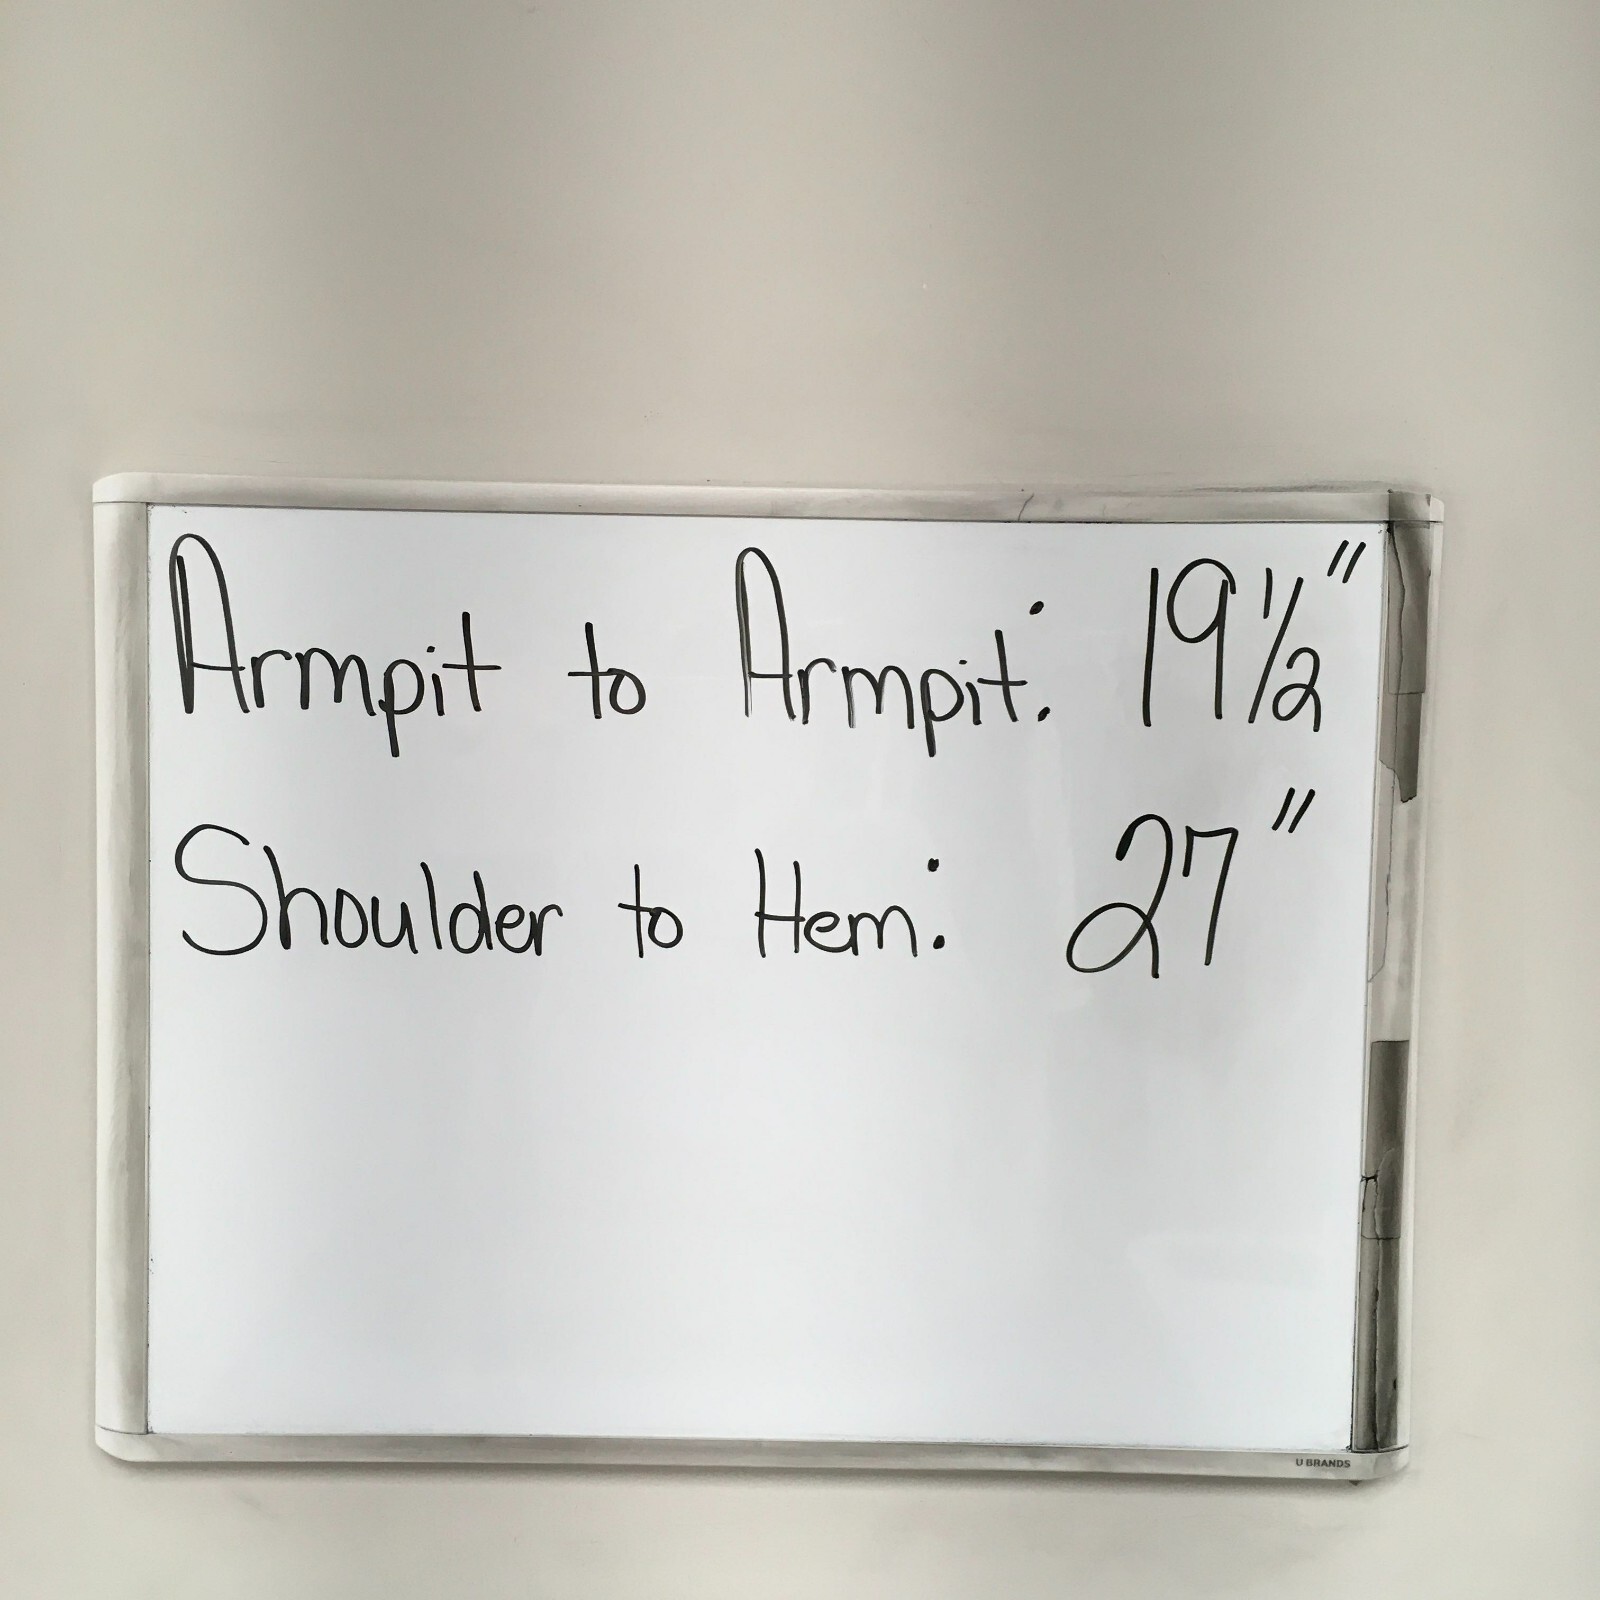 Armpit to Armpit: 19 1/2"
Shoulder to Hem: 27"
U BRANDS